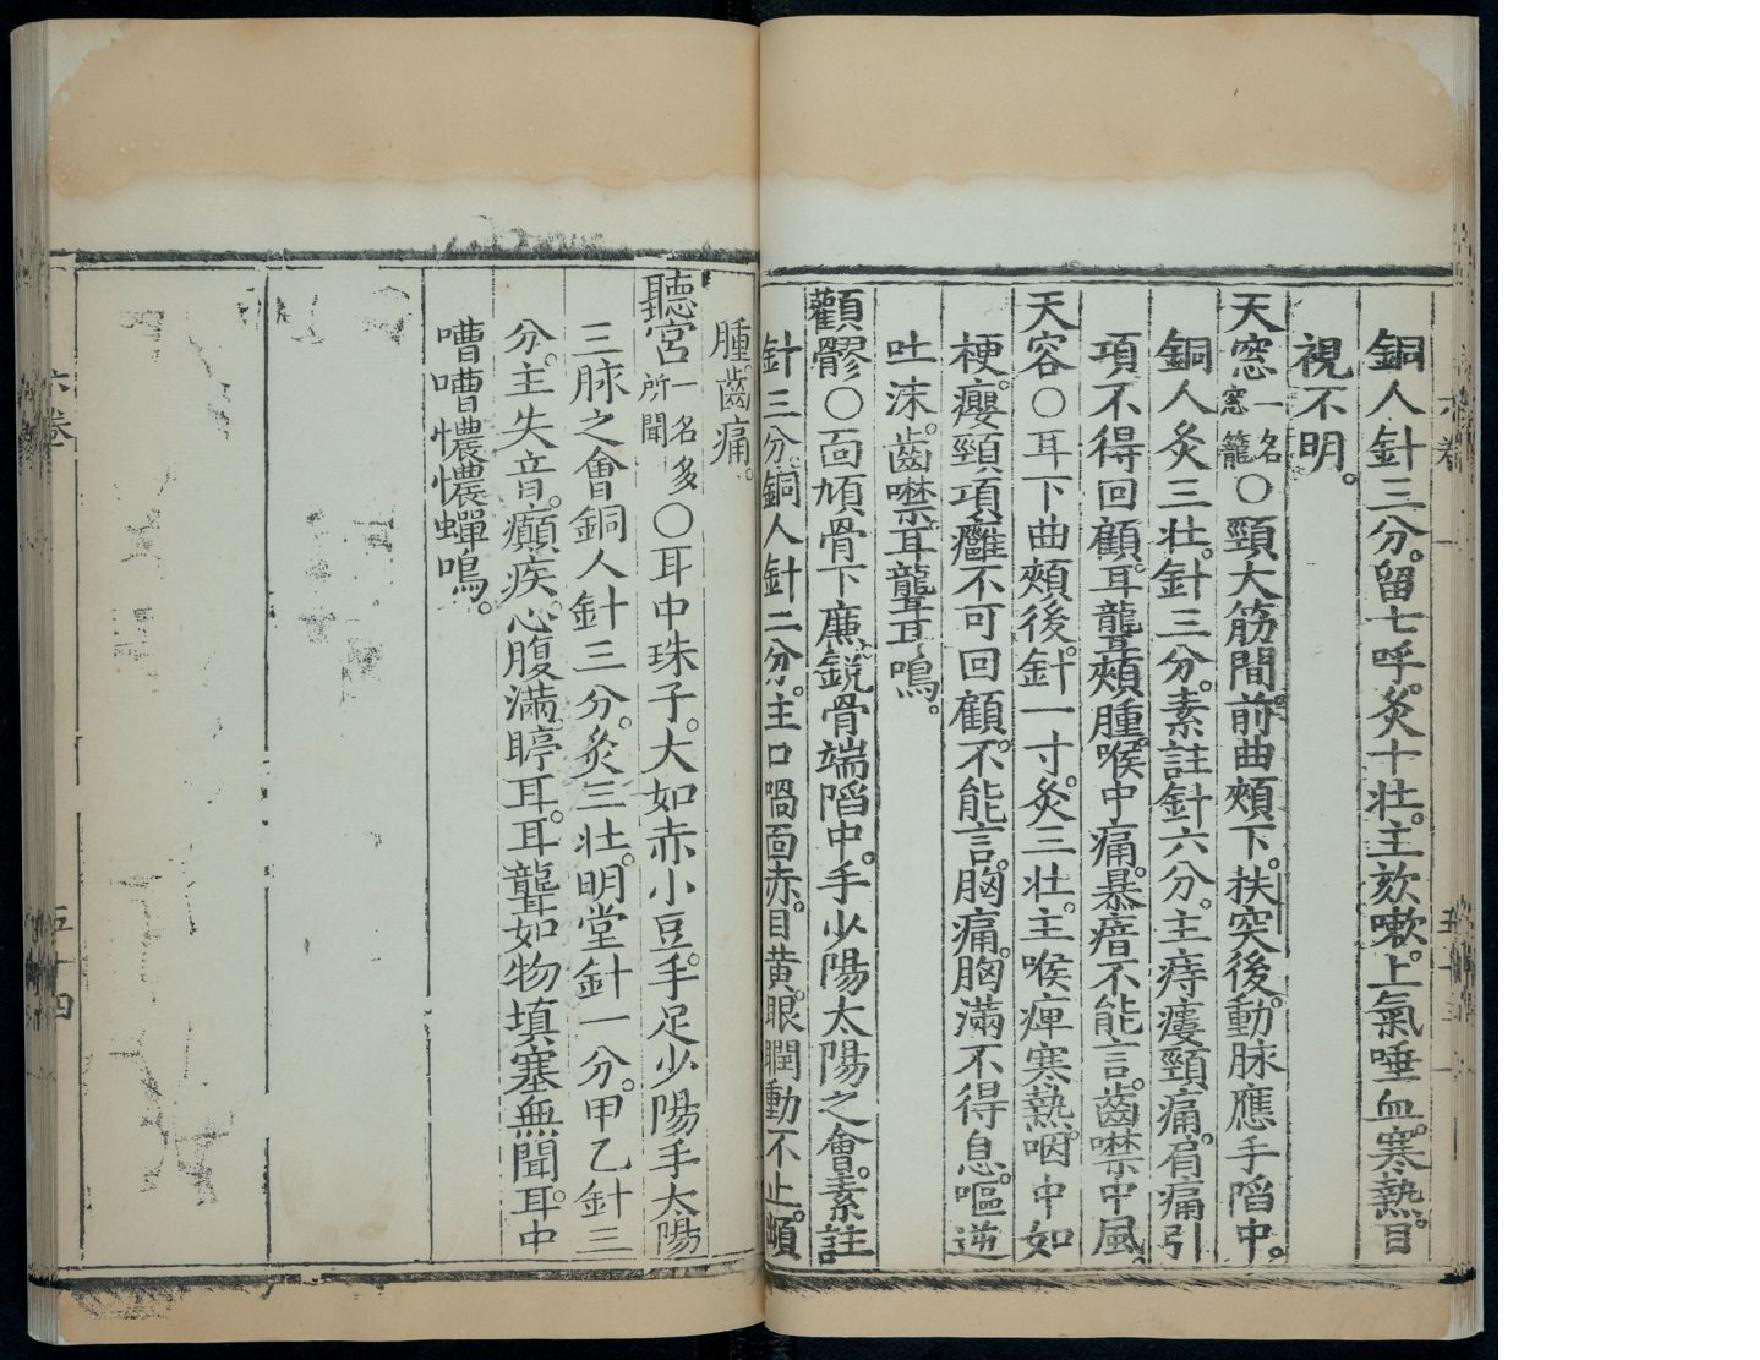 銅人針三分。留七呼。灸十壯。主欬嗽。上氣唾血。寒熱。目
視不明。
天窓一名窓籠〇頸大筋間。前曲頰下。扶突後。動脉應手陷中。
銅人灸三壯。針三分。素註針六分。主痔瘻頸痛。肩痛引
項不得回顧。耳聾頰腫。喉中痛。暴瘖不能言。齒噤中風。
天容〇耳下曲頰後。針一寸。灸三壯。主喉痺寒熱。咽中如
梗。癭頸項癰。不可回顧。不能言。胸痛。胸滿不得息。嘔逆
吐沫。齒噤。耳聾耳鳴。
顴髎〇面頄骨下廉。銳骨端陷中。手少陽太陽之會。素註
針三分。銅人針二分。主口喎面赤。目黃。眼瞤動不止。䪼
腫。齒痛。
聽宮一名多所聞〇耳中珠子。大如赤小豆。手足少陽手太陽
三脉之會銅人針三分。灸三壯。明堂針一分。甲乙針三
分。主失音。癲疾。心腹滿。聤耳。耳聾如物填塞無聞。耳中
嘈嘈憹憹蟬鳴。
六卷
五十四